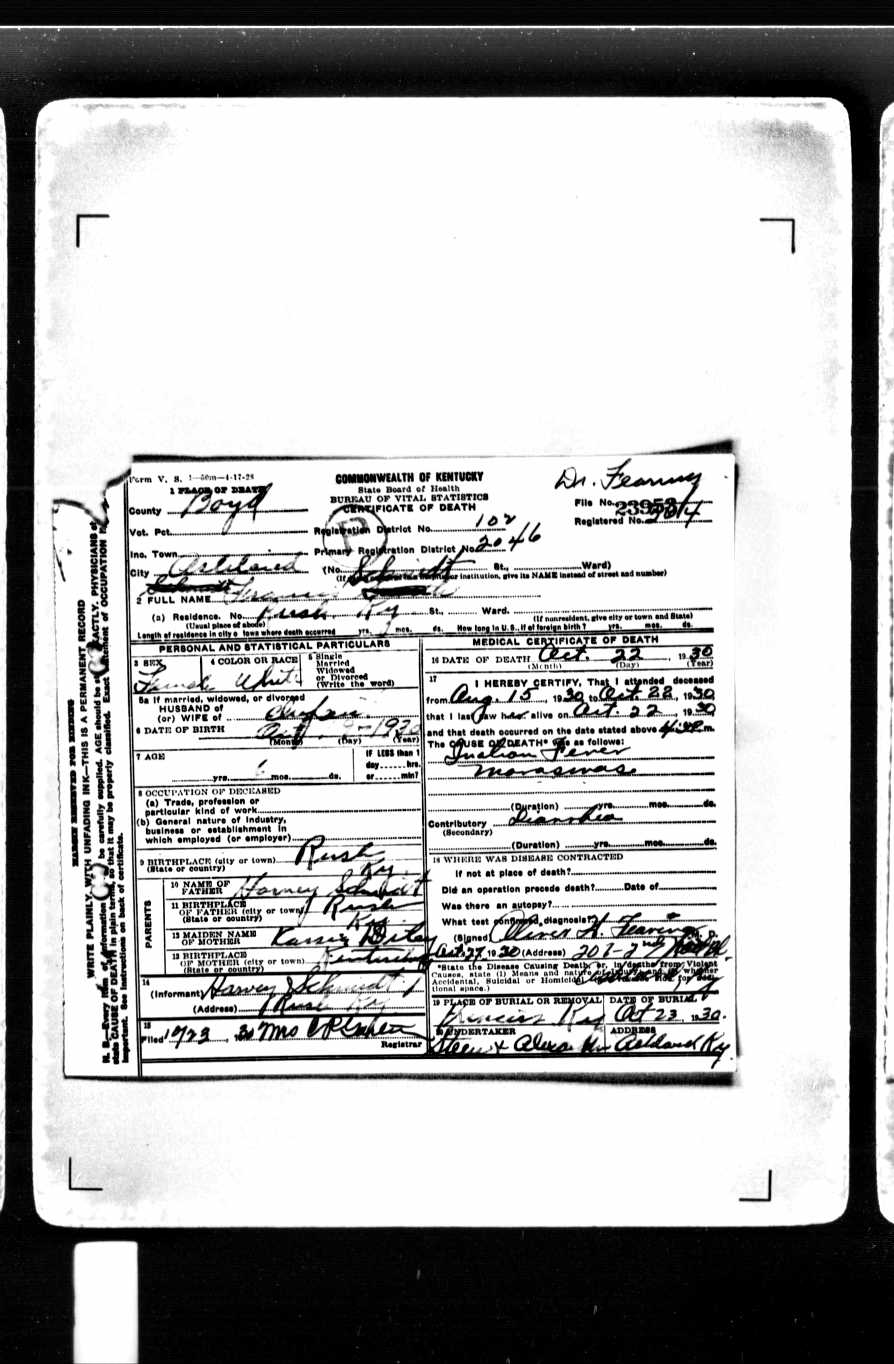 Form V. S. 1—50m—4-17-28
COMMONWEALTH OF KENTUCKY
State Board of Health
BUREAU OF VITAL STATISTICS
CERTIFICATE OF DEATH
Dr. Fearing
File No. 23953
Registered No. 264
1 PLACE OF DEATH
County Boyd
Vot. Pct.
Registration District No. 102
Inc. Town
Primary Registration District No. 2046
City Ashland
(No. St., Ward)
institution, give its NAME instead of street and number)
Schmidt
2 FULL NAME
(a) Residence. No. Rush Ky St., Ward.
(Usual place of abode) (If nonresident, give city or town and State)
Length of residence in city or town where death occurred yrs. mos. ds. How long in U. S., if of foreign birth? yrs. mos. ds.
PERSONAL AND STATISTICAL PARTICULARS
3 SEX Female
4 COLOR OR RACE White
5 Single
Married
Widowed
or Divorced
(Write the word)
5a If married, widowed, or divorced
HUSBAND of
(or) WIFE of
6 DATE OF BIRTH 1930
(Month) (Day) (Year)
7 AGE
yrs. 6 mos. ds.
IF LESS than 1
day hrs.
or min?
8 OCCUPATION OF DECEASED
(a) Trade, profession or
particular kind of work
(b) General nature of industry,
business or establishment in
which employed (or employer)
9 BIRTHPLACE (city or town) Rush
(State or country) Ky.
PARENTS
10 NAME OF
FATHER Harvey Schmidt
11 BIRTHPLACE
OF FATHER (city or town) Rush
(State or country) Ky
12 MAIDEN NAME
OF MOTHER
13 BIRTHPLACE
OF MOTHER (city or town) Kentucky
(State or country)
14
(Informant) Harvey Schmidt
(Address) Rush Ky
15
Filed 19 30 Mrs
Registrar
MEDICAL CERTIFICATE OF DEATH
16 DATE OF DEATH Oct. 22, 1930
(Month) (Day) (Year)
17
I HEREBY CERTIFY, That I attended deceased
from Aug. 15, 1930 to Oct. 22, 1930
that I last saw her alive on Oct. 22, 1930
and that death occurred on the date stated above m.
The CAUSE OF DEATH* was as follows:
Fever
Marasmas
(Duration) yrs. mos. ds.
Contributory Diarrhea
(Secondary)
(Duration) yrs. mos. ds.
18 WHERE WAS DISEASE CONTRACTED
If not at place of death?
Did an operation precede death? Date of
Was there an autopsy?
What test confirmed diagnosis?
(Signed) Oliver H. Fearing
Oct. 27, 1930 (Address) 207-2nd
*State the Disease Causing Death, or, in deaths from Violent
Causes, state (1) Means and nature of Injury; and (2) whether
Accidental, Suicidal or Homicidal
tional space.)
19 PLACE OF BURIAL OR REMOVAL
Princess Ky
DATE OF BURIAL
Oct 23, 1930.
20 UNDERTAKER
Steen &
ADDRESS
Ashland Ky.
MARGIN RESERVED FOR BINDING
WRITE PLAINLY, WITH UNFADING INK—THIS IS A PERMANENT RECORD
N. B.—Every item of information be carefully supplied. AGE should be EXACTLY. PHYSICIANS
state CAUSE OF DEATH in plain terms, so that it may be properly classified. Exact statement of OCCUPATION
important. See instructions on back of certificate.